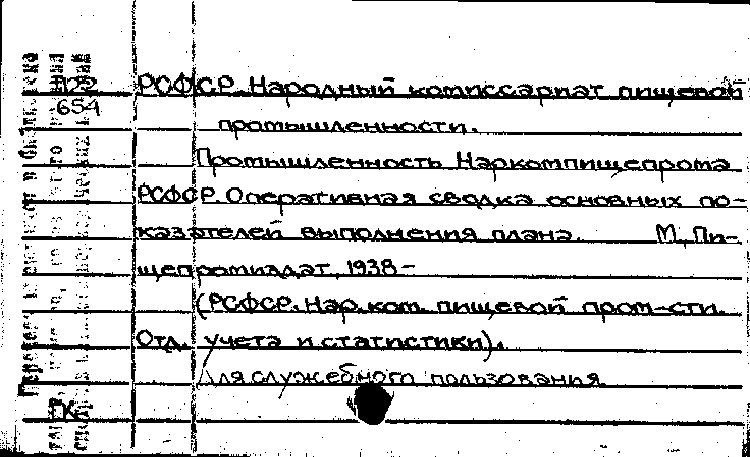 П22 РСФСР. Народный комиссариат пищевой
654 промышленности.
Промышленность Наркомпищепрома
РСФСР. Оперативная сводка основных по-
казателей выполнения плана. М., Пи-
щепромиздат, 1938-
(РСФСР. Нар. ком. пищевой пром-сти.
Отд. учета и статистики).
Для служебного пользования
К